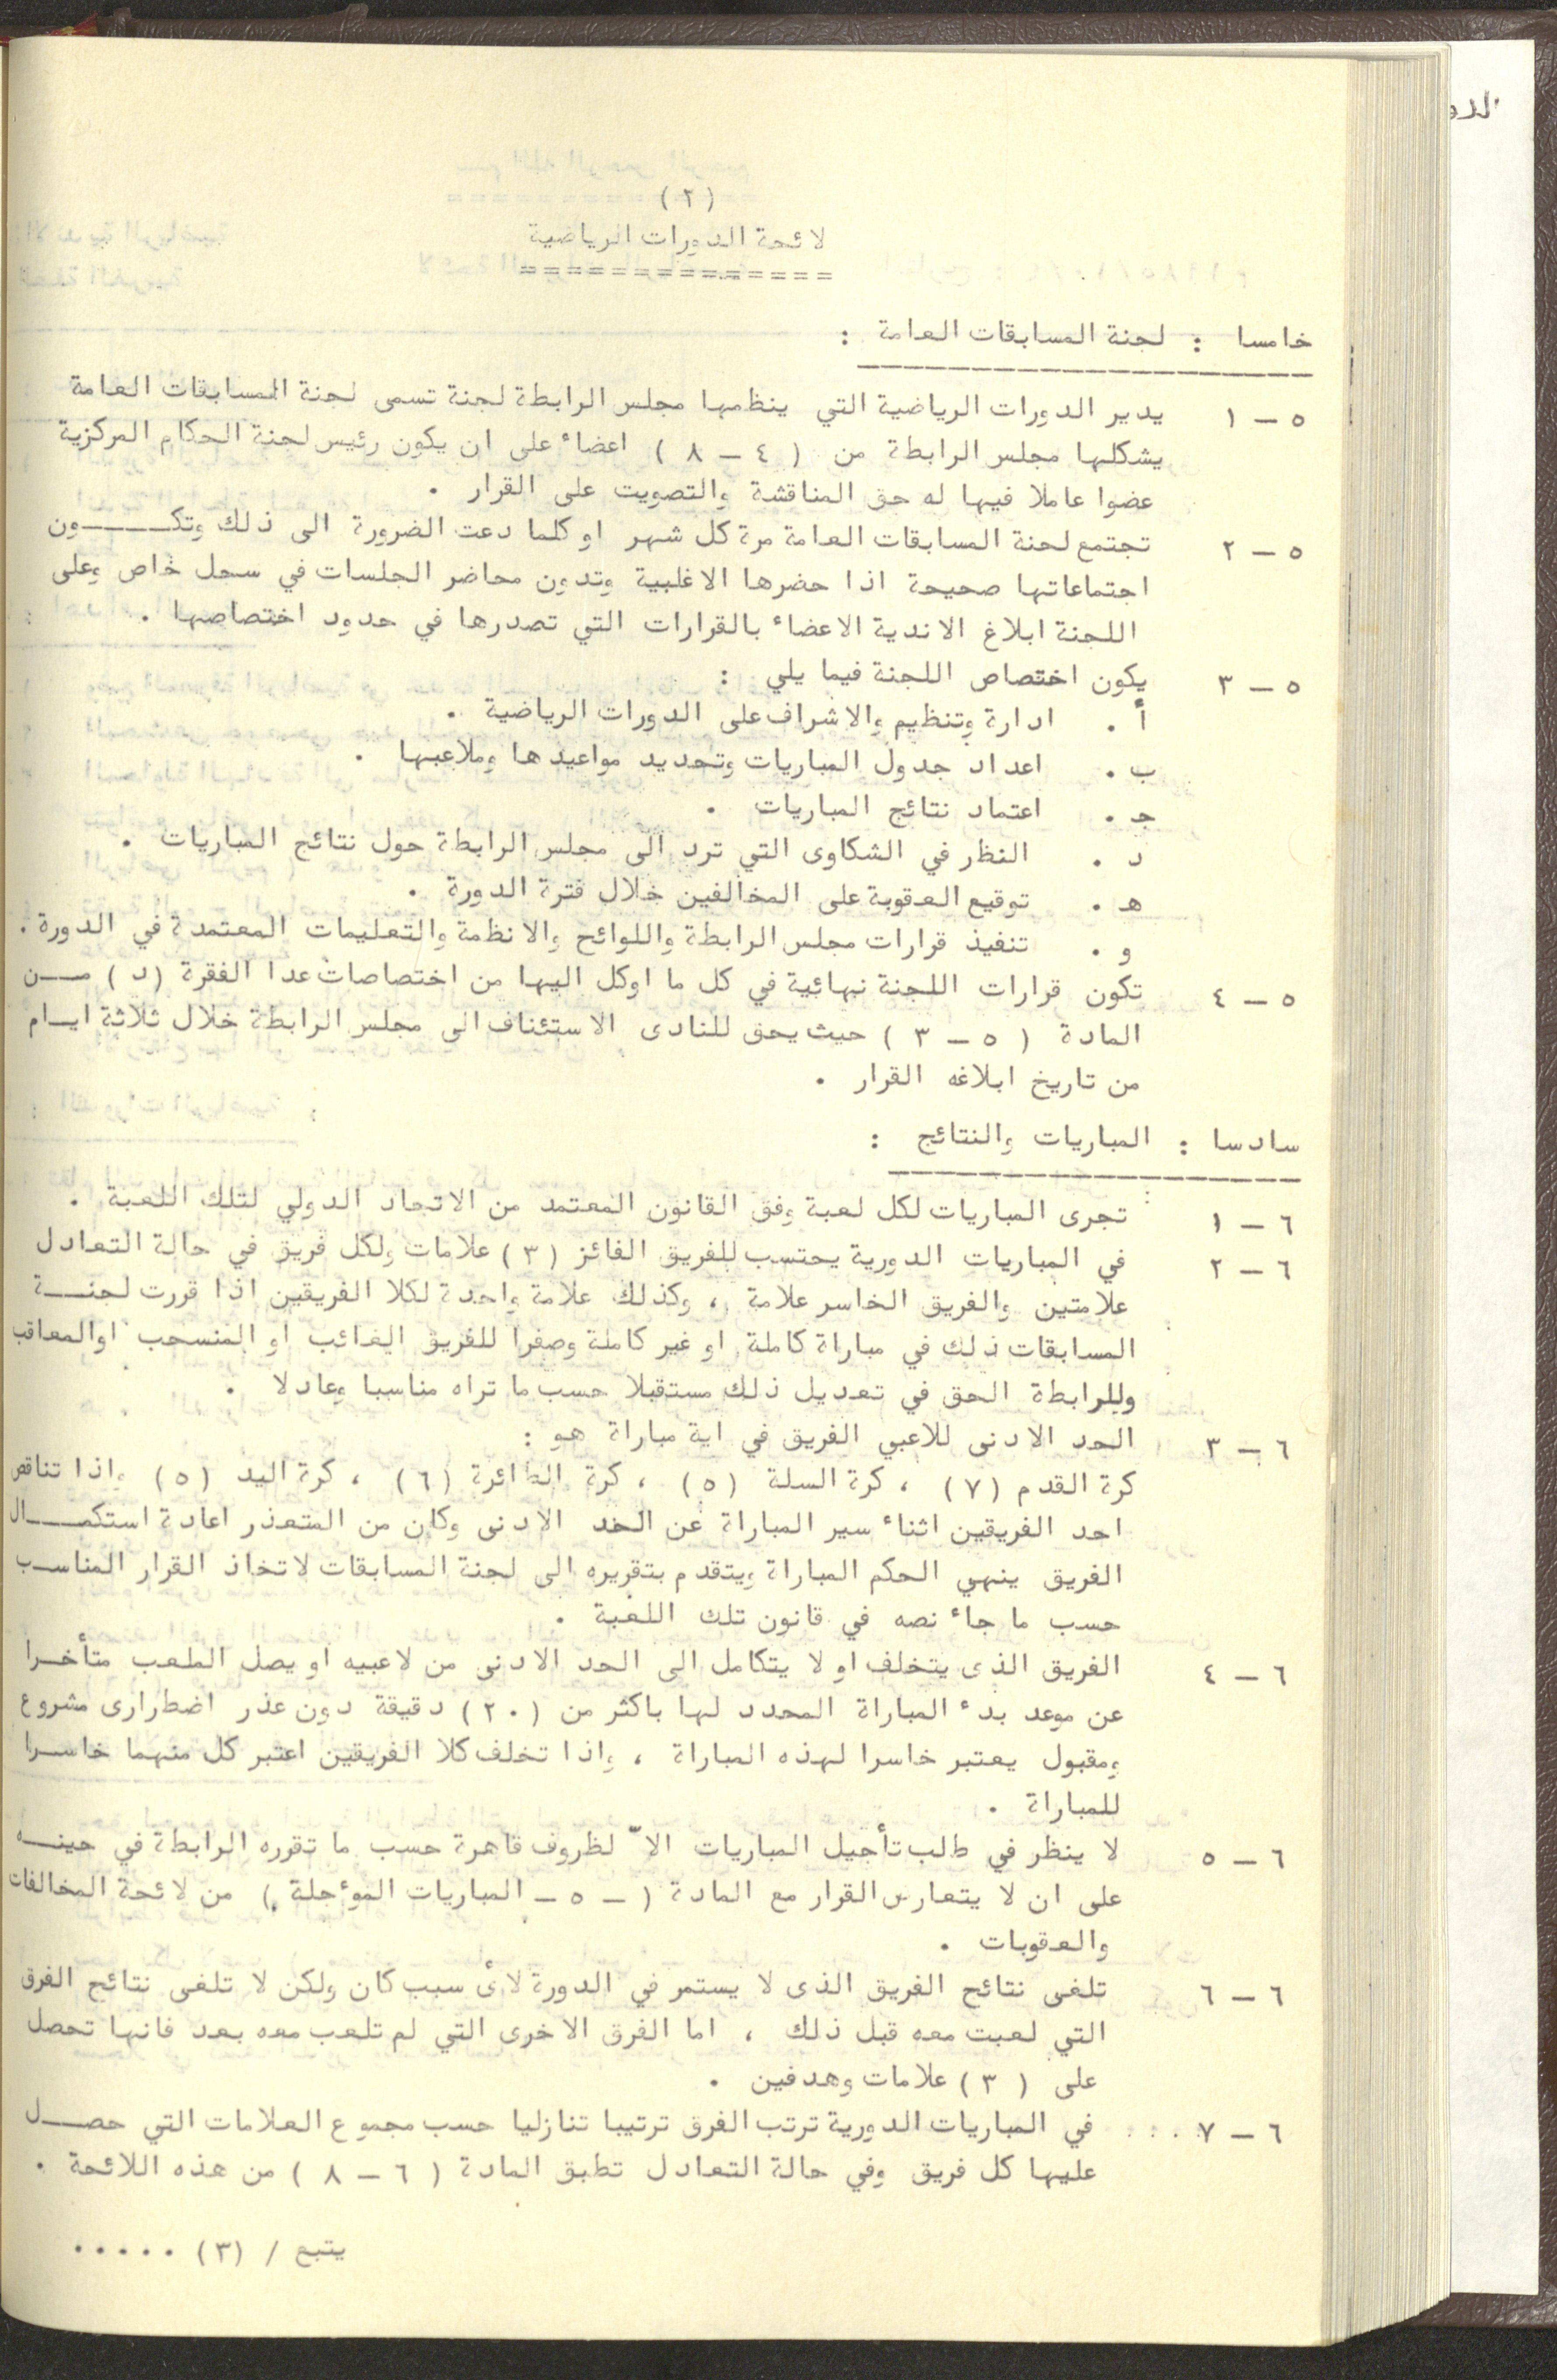 (٢)
لائحة الدورات الرياضية
==============
خامسا : لجنة المسابقات العامة :
٥ – ١ يدير الدورات الرياضية التي ينظمها مجلس الرابطة لجنة تسمى لجنة المسابقات العامة
يشكلها مجلس الرابطة من ( ٤ – ٨ ) اعضاء على ان يكون رئيس لجنة الحكام المركزية
عضوا عاملا فيها له حق المناقشة والتصويت على القرار .
٥ – ٢ تجتمع لجنة المسابقات العامة مرة كل شهر او كلما دعت الضرورة الى ذلك وتكـــون
اجتماعاتها صحيحة اذا حضرها الاغلبية وتدون محاضر الجلسات في سجل خاص وعلى
اللجنة ابلاغ الاندية الاعضاء بالقرارات التي تصدرها في حدود اختصاصها .
٥ – ٣ يكون اختصاص اللجنة فيما يلي :
أ . ادارة وتنظيم والاشراف على الدورات الرياضية .
ب . اعداد جدول المباريات وتحديد مواعيدها وملاعبها .
جـ . اعتماد نتائج المباريات .
د . النظر في الشكاوى التي ترد الى مجلس الرابطة حول نتائج المباريات .
هـ . توقيع العقوبة على المخالفين خلال فترة الدورة .
و . تنفيذ قرارات مجلس الرابطة واللوائح والانظمة والتعليمات المعتمدة في الدورة .
٥ – ٤ تكون قرارات اللجنة نهائية في كل ما اوكل اليها من اختصاصات عدا الفقرة (د) مــن
المادة ( ٥ – ٣ ) حيث يحق للنادى الاستئناف الى مجلس الرابطة خلال ثلاثة ايـام
من تاريخ ابلاغه القرار .
سادسا : المباريات والنتائج :
٦ – ١ تجرى المباريات لكل لعبة وفق القانون المعتمد من الاتحاد الدولي لتلك اللعبة .
٦ – ٢ في المباريات الدورية يحتسب للفريق الفائز (٣) علامات ولكل فريق في حالة التعادل
علامتين والفريق الخاسر علامة ، وكذلك علامة واحدة لكلا الفريقين اذا قررت لجنــة
المسابقات ذلك في مباراة كاملة او غير كاملة وصفرا للفريق الغائب او المنسحب اوالمعاقب
وللرابطة الحق في تعديل ذلك مستقبلا حسب ما تراه مناسبا وعادلا .
٦ – ٣ الحد الادنى للاعبي الفريق في اية مباراة هو :
كرة القدم (٧) ، كرة السلة (٥) ، كرة الطائرة (٦) ، كرة اليد (٥) واذا تناقص
احد الفريقين اثناء سير المباراة عن الحد الادنى وكان من المتعذر اعادة استكمــال
الفريق ينهي الحكم المباراة ويتقدم بتقريره الى لجنة المسابقات لاتخاذ القرار المناسب
حسب ما جاء نصه في قانون تلك اللعبة .
٦ – ٤ الفريق الذى يتخلف او لا يتكامل الى الحد الادنى من لاعبيه او يصل الملعب متأخـرا
عن موعد بدء المباراة المحدد لها باكثر من (٢٠) دقيقة دون عذر اضطرارى مشروع
ومقبول يعتبر خاسرا لهذه المباراة ، واذا تخلف كلا الفريقين اعتبر كل منهما خاسـرا
للمباراة .
٦ – ٥ لا ينظر في طلب تأجيل المباريات الاّ لظروف قاهرة حسب ما تقرره الرابطة في حينـه
على ان لا يتعارض القرار مع المادة ( – ٥ – المباريات المؤجلة ) من لائحة المخالفات
والعقوبات .
٦ – ٦ تلغى نتائج الفريق الذى لا يستمر في الدورة لاى سبب كان ولكن لا تلغى نتائج الفرق
التي لعبت معه قبل ذلك ، اما الفرق الاخرى التي لم تلعب معه بعد فانها تحصل
على ( ٣ ) علامات وهدفين .
٦ – ٧ في المباريات الدورية ترتب الفرق ترتيبا تنازليا حسب مجموع العلامات التي حصــل
عليها كل فريق وفي حالة التعادل تطبق المادة ( ٦ – ٨ ) من هذه اللائحة .
يتبع / (٣) .....